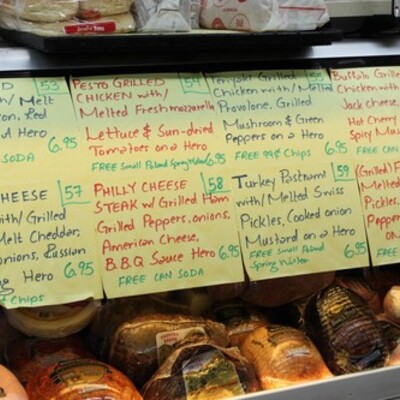 53
w/ Melt
Red
Hero 6.95
SODA
PESTO GRILLED 54
CHICKEN with/
Melted Fresh mozzarella
Lettuce & Sun-dried
Tomatoes on a Hero
FREE Small Poland Spring Water 6.95
Teriyaki Grilled 55
Chicken with/ Melted
Provolone, Grilled
Mushroom & Green
Peppers on a Hero
FREE 99¢ Chips 6.95
Buffalo Grill
Chicken with
Jack cheese,
Hot Cherry
Spicy Must
FREE CAN
CHEESE 57
with/ Grilled
Melt Cheddar,
onions, Russian
Hero 6.95
Chips
PHILLY CHEESE 58
STEAK w/ Grilled Ham
Grilled Peppers, onions,
American Cheese,
B.B.Q Sauce Hero 6.95
FREE CAN SODA
Turkey Pastrami 59
with/ Melted Swiss
Pickles, Cooked onion
Mustard on a Hero 6.95
FREE Small Poland
Spring Water
(Grilled)
Melted
Pickles,
Pepper
ON
FREE